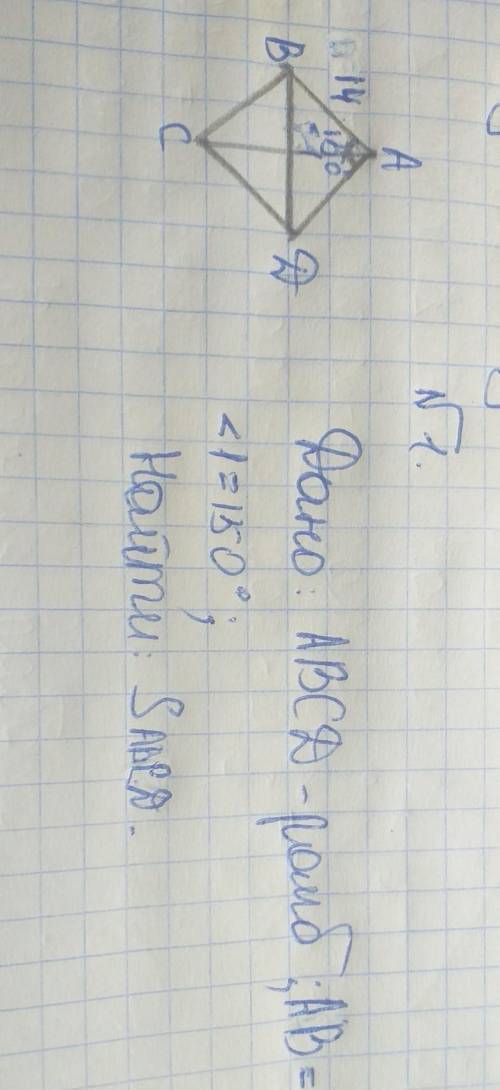 №1.
Дано: ABCD - ромб; AB =
<1 = 150°;
Найти: S ABCD.
A
B
14
150°
C
D